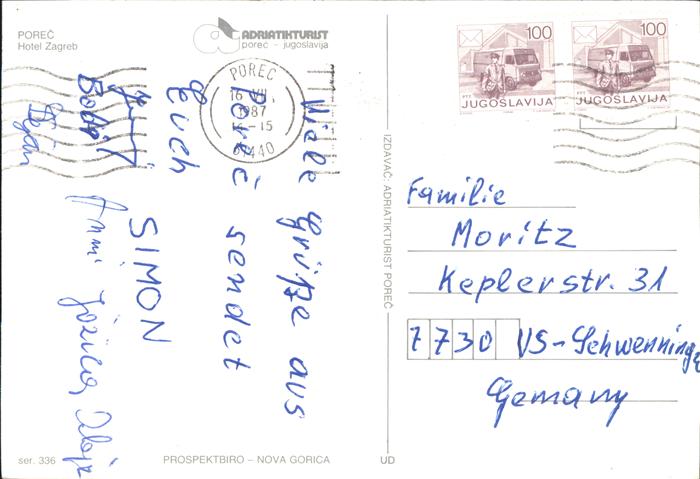 POREČ
Hotel Zagreb
ADRIATIKTURIST
poreč - jugoslavija
POREČ
16 VII.
1987
-15
51440
100
JUGOSLAVIJA
100
JUGOSLAVIJA
Viele Grüße aus
Poreč sendet
Euch
SIMON
Anni Jožica
IZDAVAČ: ADRIATIKTURIST POREČ
Familie
Moritz
Keplerstr. 31
7730 VS-Schwenninge
Gemany
ser. 336
PROSPEKTBIRO – NOVA GORICA
UD